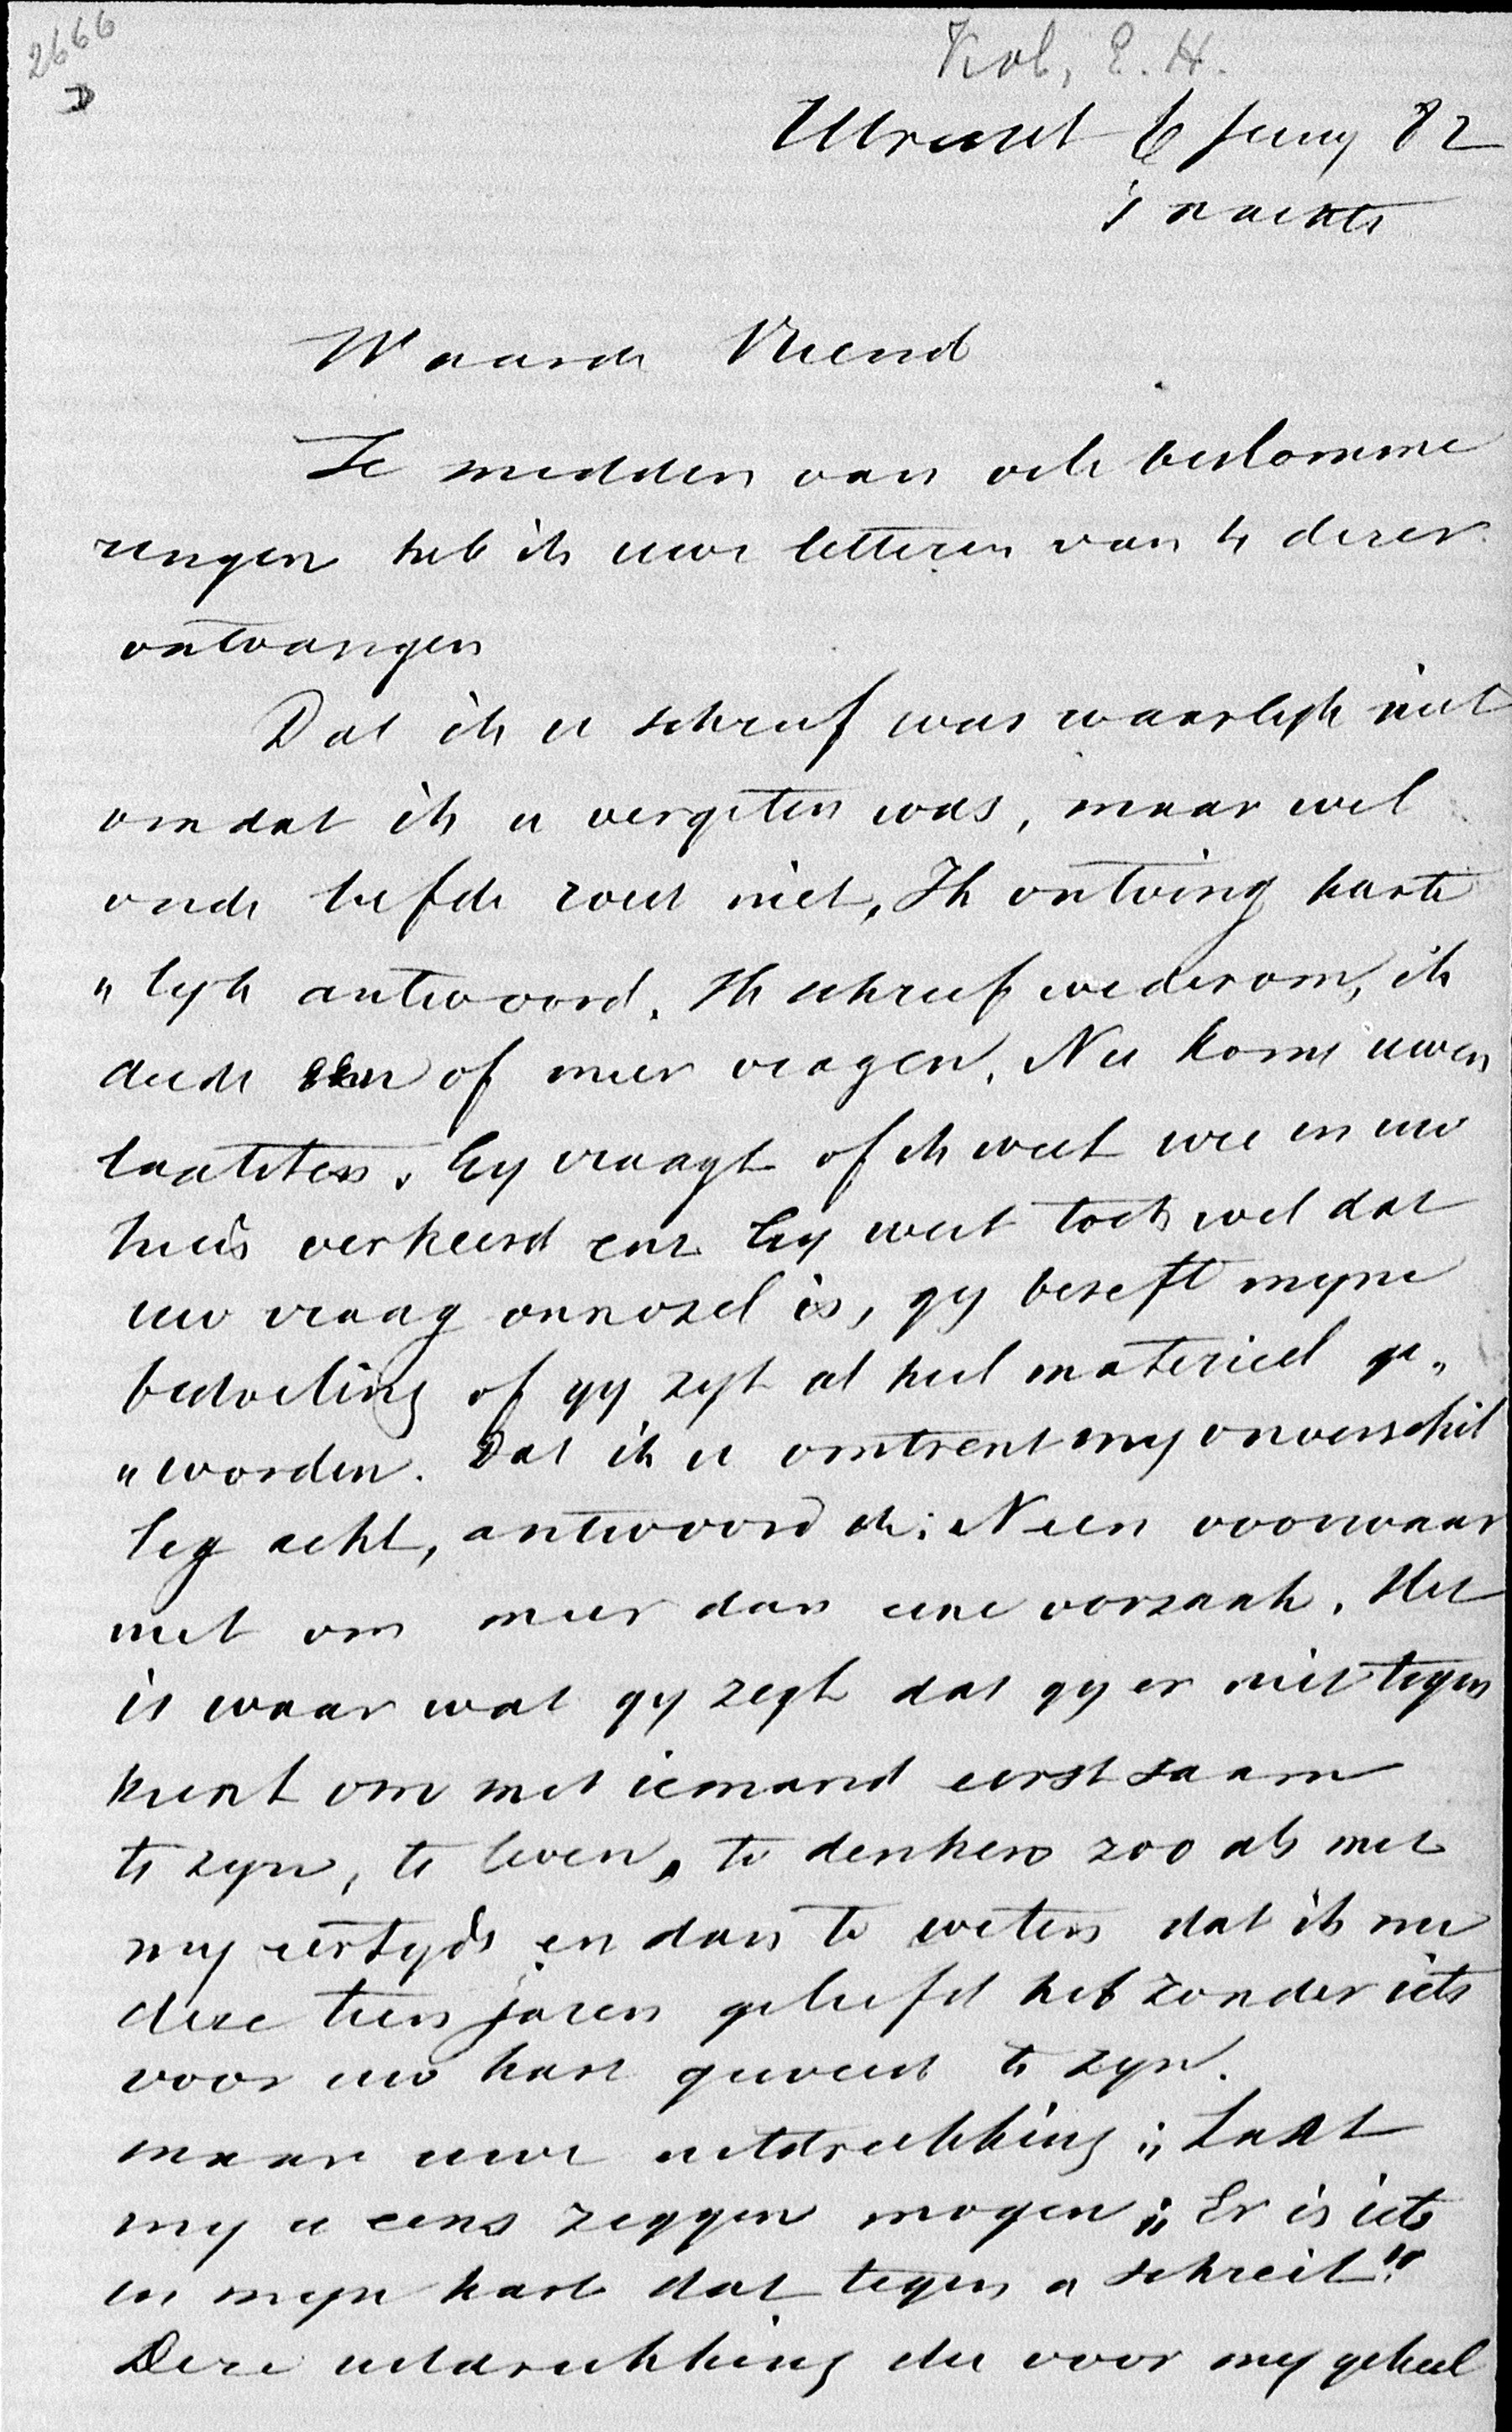 2666
D
Kol, E. H.
Utrecht 6 Juny 82
's nachts
Waarde Vriend
Te midden van vele beslomme
ringen heb ik uwe letteren van 4 dezer
ontvangen
Dat ik u schreef was waarlyk niet
omdat ik u vergeten was, maar wel
oude liefde roest niet, Ik ontving harte
"lyk antwoord. Ik schreef wederom, ik
deede een of meer vragen. Nu komt uwen
laatsten. Gy vraagt of ik weet wie in uw
huis verkeerd enz. Gy weet toch wel dat
uw vraag onnozel is, gy beseft myne
bedoeling of gy zyt al heel materieel ge"
"worden. Dat ik u omtrent my onverschil
lig acht, antwoord ik: Neen voorwaar
niet om meer dan eene oorzaak. Het
is waar wat gy zegt dat gy er niet tegen
kunt om met iemand eerst saam
te zyn, te leven, te denken zoo als met
my eertyds en dan te weten dat ik nu
deze tien jaren geleefd heb zonder iets
voor uw hart geweest te zyn.
maar uwe uitdrukking ;, Laat
my u eens zeggen mogen ;, Er is iets
in myn hart dat tegen u schreit!"
Deze uitdrukking die voor my geheel